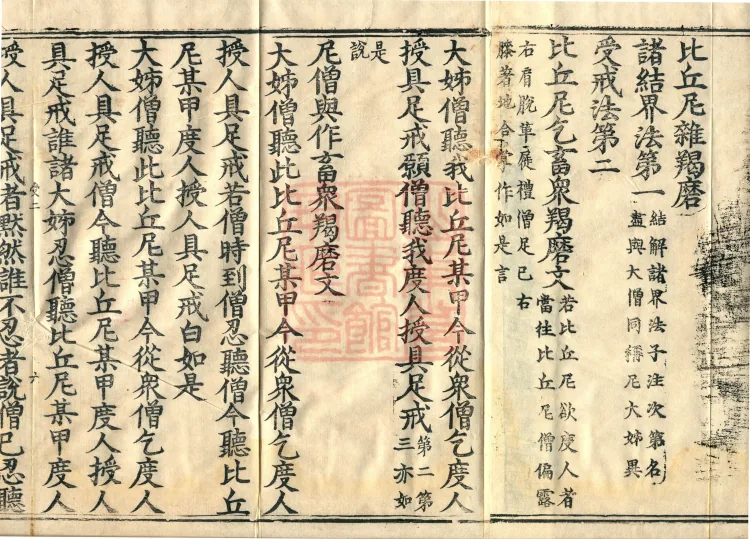 比丘尼雜羯磨
諸結界法第一
結解諸界法子注次第名
盡與大僧同稱尼大姊異
受戒法第二
比丘尼乞畜衆羯磨文
若比丘尼欲度人者
當往比丘尼僧偏露
右肩脫革屣禮僧足已右
膝著地合掌作如是言
大姊僧聽我比丘尼某甲今從衆僧乞度人
授具足戒願僧聽我度人授具足戒
第二第
三亦如
是
說
尼僧與作畜衆羯磨文
大姊僧聽此比丘尼某甲今從衆僧乞度人
授人具足戒若僧時到僧忍聽僧今聽比丘
尼某甲度人授人具足戒白如是
大姊僧聽此比丘尼某甲今從衆僧乞度人
授人具足戒僧今聽比丘尼某甲度人授人
具足戒誰諸大姊忍僧聽比丘尼某甲度人
授人具足戒者黙然誰不忍者說僧已忍聽